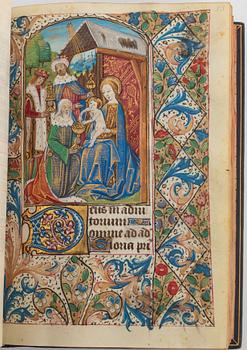 Deus in adiu
torium
Domine ad ad
Gloria pri